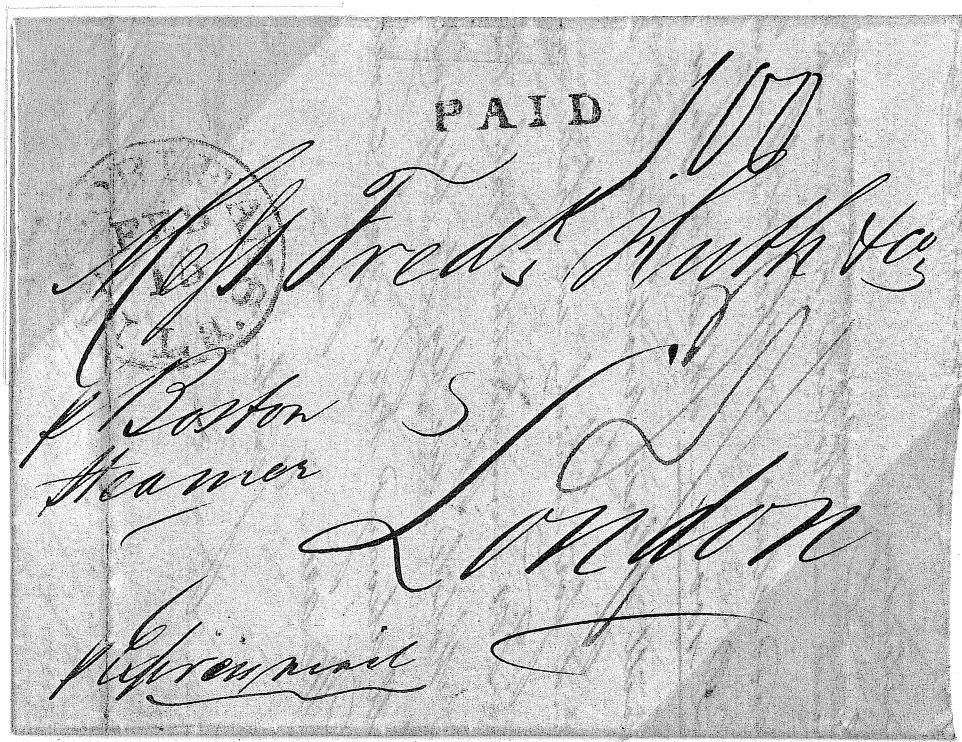 PAID 100
Mess Fredk Huth & Co
p Boston
Steamer
London
p Express mail